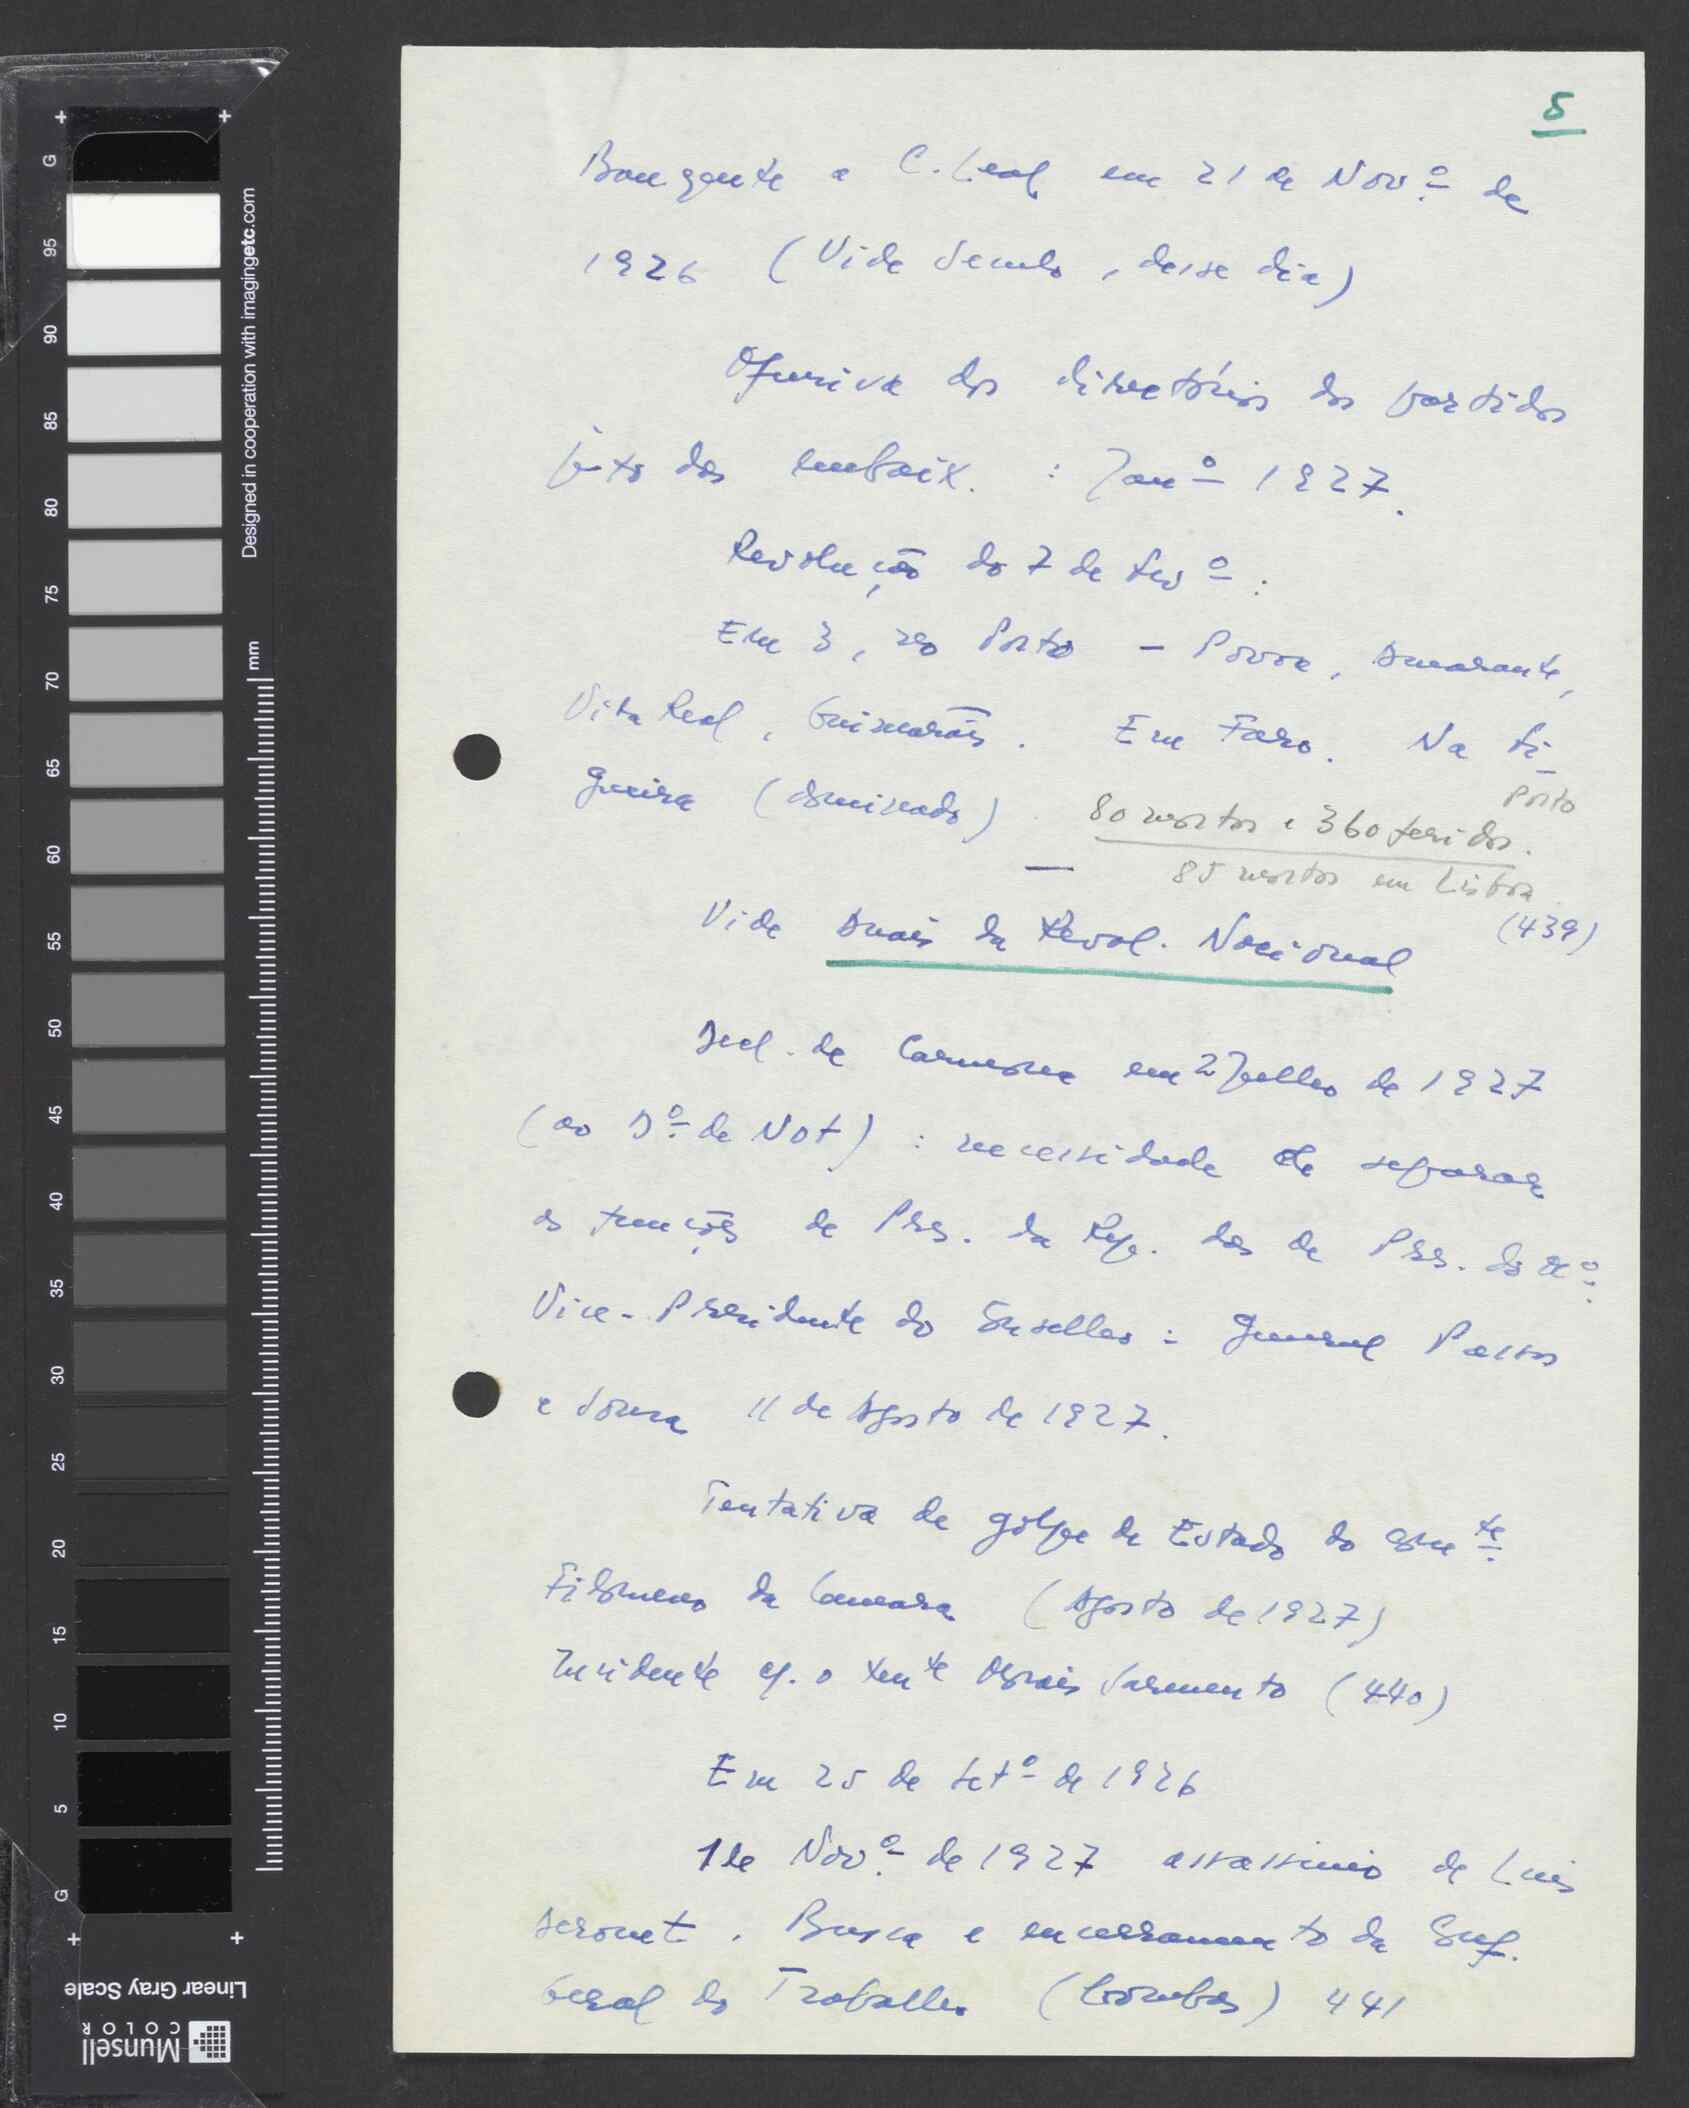 5
Banquete a C. Leal em 21 de Novº de
1926 (Vide Seculo, desse dia)
Ofensiva dos directórios dos partidos
junto das embaix. : Janº 1927.
Revolução do 7 de Fevº :
Em 3, no Porto – Povoa, Amarante,
Vila Real, Guimarães. Em Faro. Na Fi-
gueira (dominado)
Porto
80 mortos e 360 feridos.
85 mortos em Lisboa
(439)
Vide Anais da Revol. Nacional
Decl. de Carmona em 2 Julho de 1927
(ao Dº de Not) : necessidade de separar
as funções de Pres. da Rep. das de Pres. do
Vice-Presidente do Conselho : General Passos
e Sousa 11 de Agosto de 1927.
Tentativa de golpe de Estado do comte
Filomeno da Camara (Agosto de 1927)
Incidente c. o tente Morais Sarmento (440)
Em 25 de Setº de 1926
1 de Novº de 1927 assassinio de Luis
Derouet. Busca e encerramento da Conf.
Geral do Trabalho (bombas) 441
Designed in cooperation with imagingetc.com
mm
G
95
90
85
80
75
70
65
60
55
50
45
40
35
30
25
20
15
10
5
G
Linear Gray Scale
Munsell
COLOR